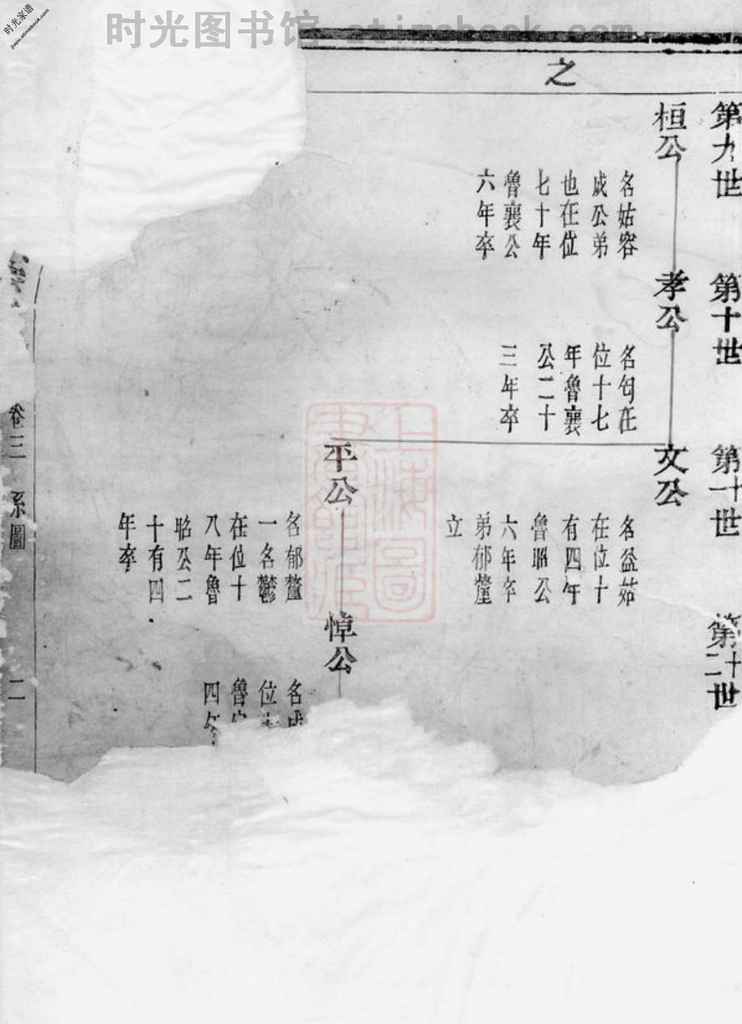 时光图书馆 etimebook.com
时光家谱
之
第九世
桓公
名姑容
成公弟
也在位
七十年
魯襄公
六年卒
第十世
孝公
名匄在
位十七
年魯襄
公二十
三年卒
第十一世
文公
名益姑
在位十
有四年
魯昭公
六年卒
弟郁釐
立
平公
名郁釐
一名鬱
在位十
八年魯
昭公二
十有四
年卒
第十二世
悼公
名成
位
魯
四年
卷三
系圖
二